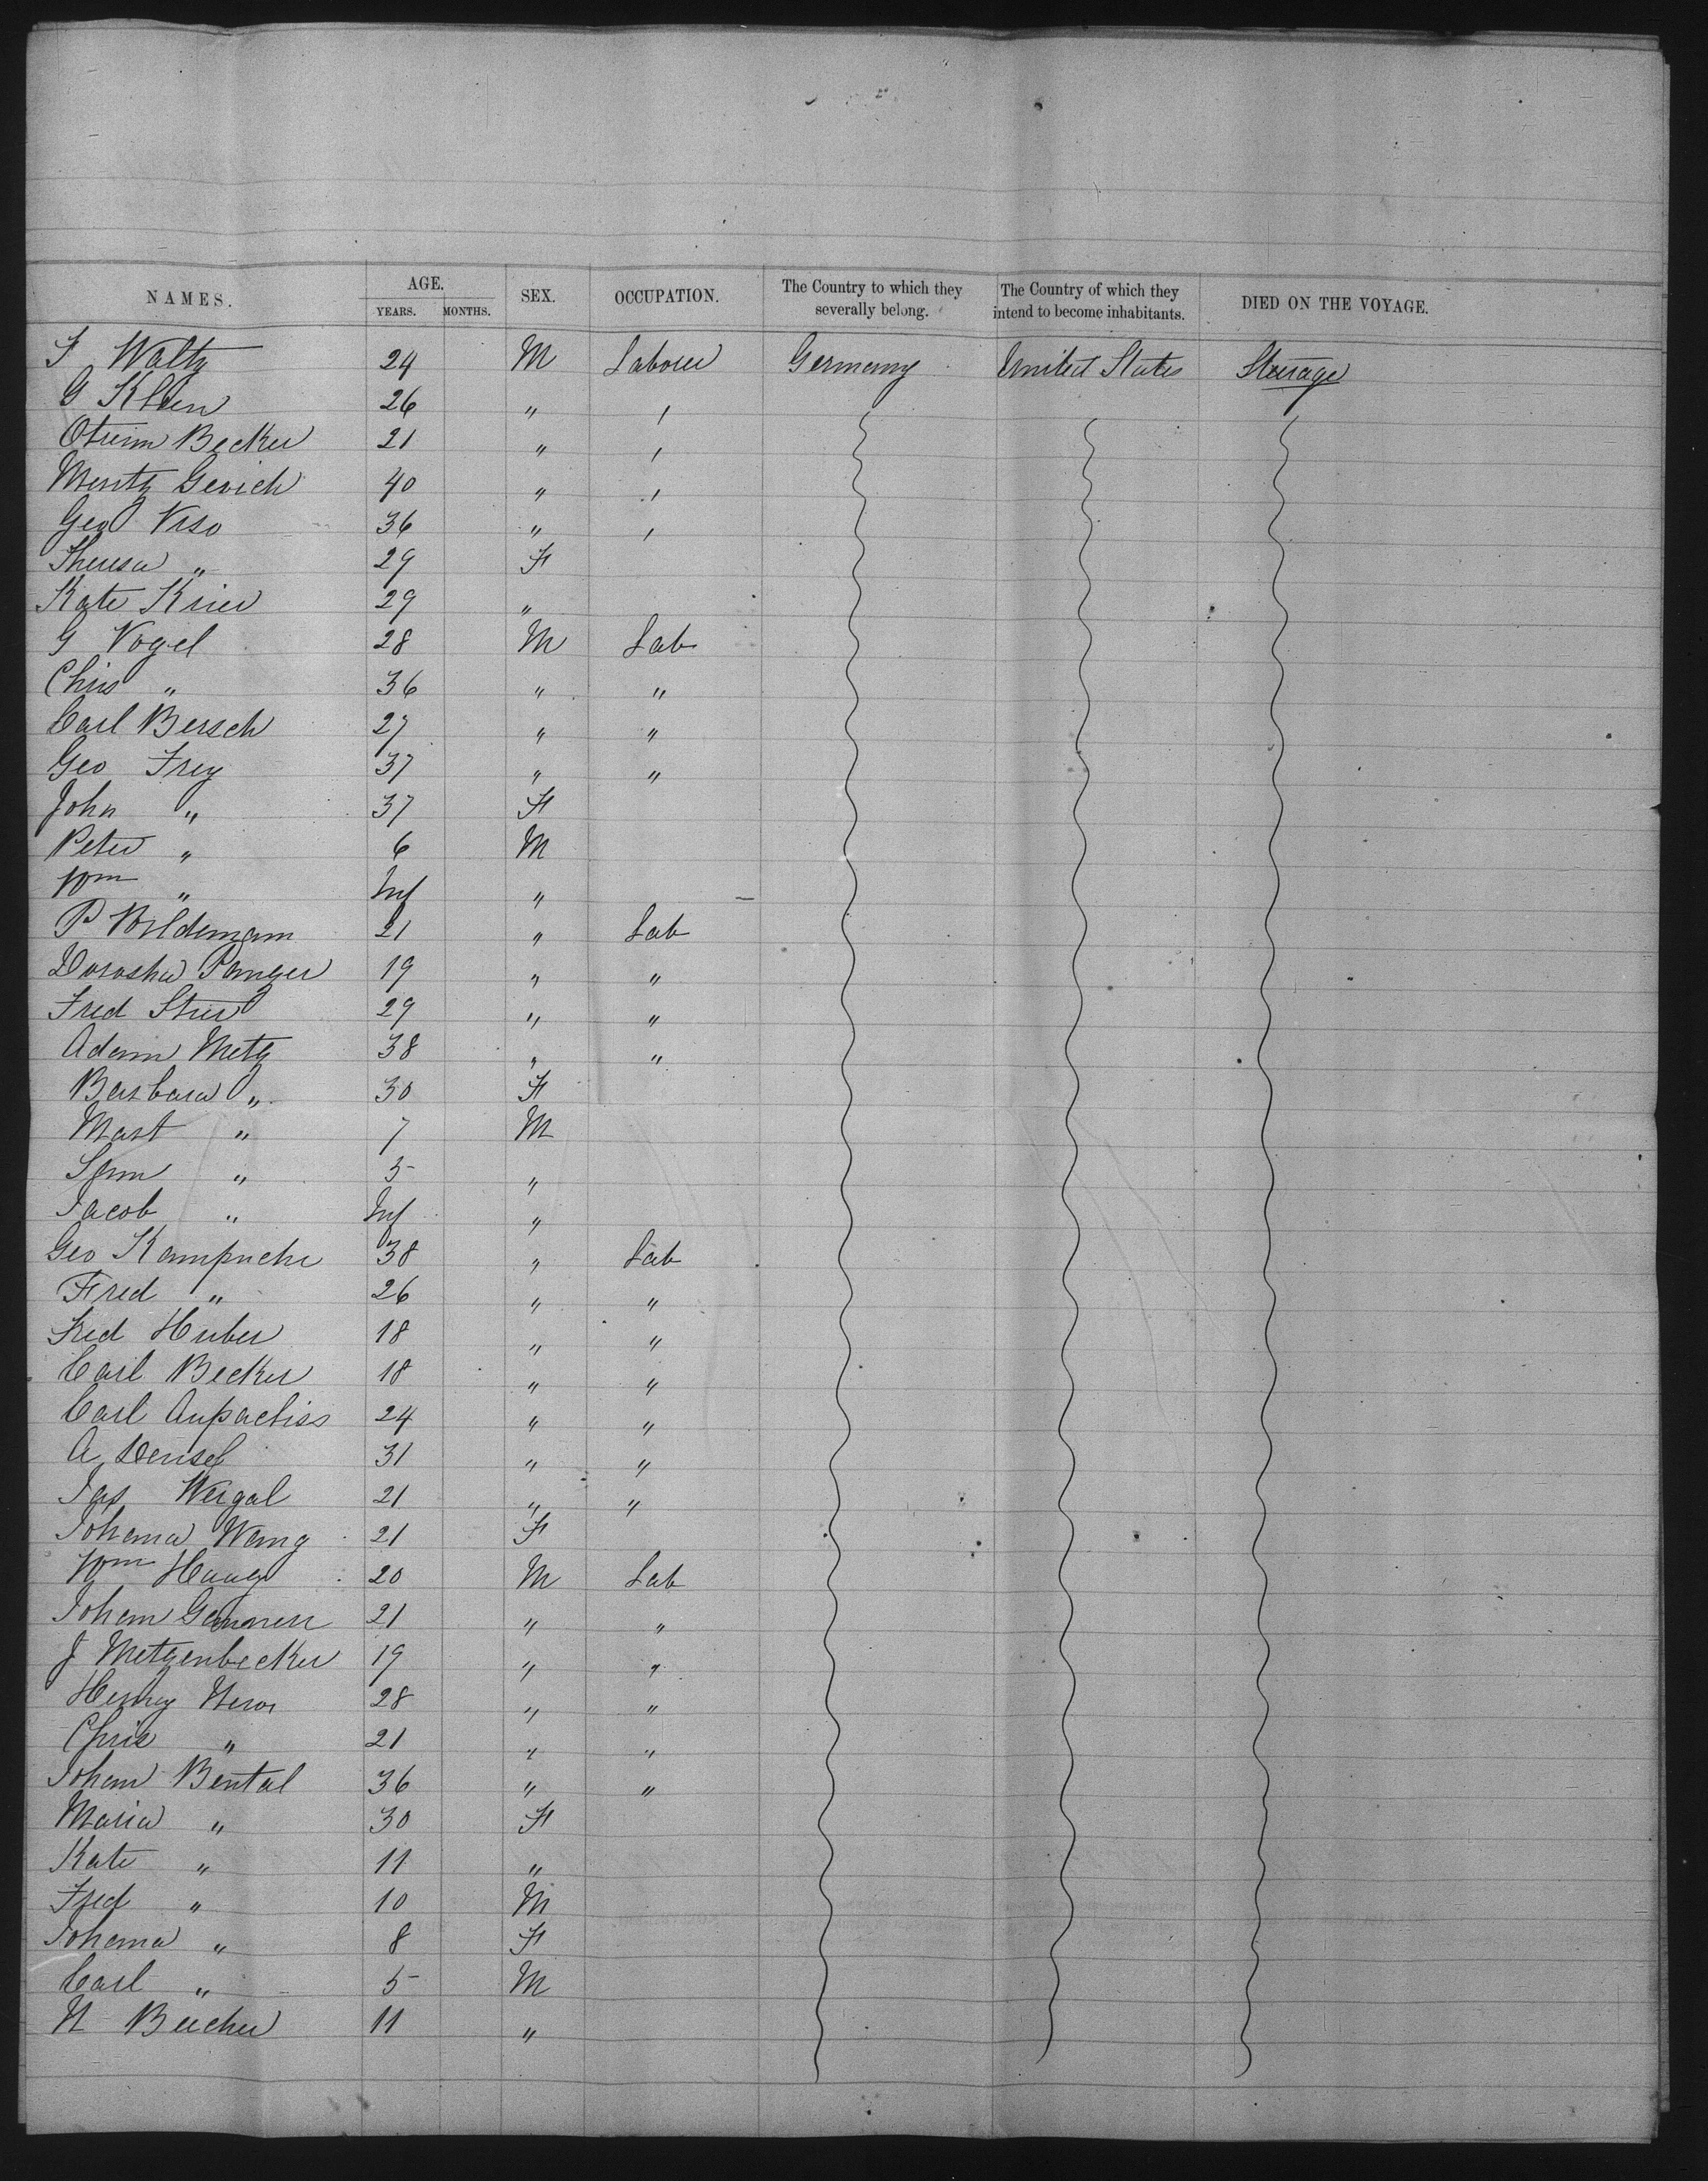 NAMES. AGE. SEX. OCCUPATION. The Country to which they severally belong. The Country of which they intend to become inhabitants. DIED ON THE VOYAGE.
YEARS. MONTHS.
F Waltz 24 M Laborer Germany United States Steerage
G Klein 26 " "
Becker 21 " "
Moritz 40 " "
Geo 36 " "
Theresa " 29 F
Kate Krier 29 "
G Vogel 28 M Lab
Chris " 36 " "
Carl Bersch 27 " "
Geo Frey 37 " "
John " 37 F
Peter " 6 M
Wm " Inf "
P Wildemann 21 " Lab
19 " "
Fred 29 " "
Adam Metz 38 " "
Barbara " 30 F
Mart " 7 M
Sam " 5 "
Jacob " Inf "
Geo 38 " Lab
Fred " 26 " "
Fred Huber 18 " "
Carl Becker 18 " "
Carl 24 " "
A Densel 31 " "
Weigal 21 " "
Johana Wang 21 F
Wm Haug 20 M Lab
Johan 21 " "
J Metzenbecker 19 " "
Henry 28 " "
Chris " 21 " "
Johan Bental 36 " "
Maria " 30 F
Kate " 11 "
Fred " 10 M
Johana " 8 F
Carl " 5 M
11 "